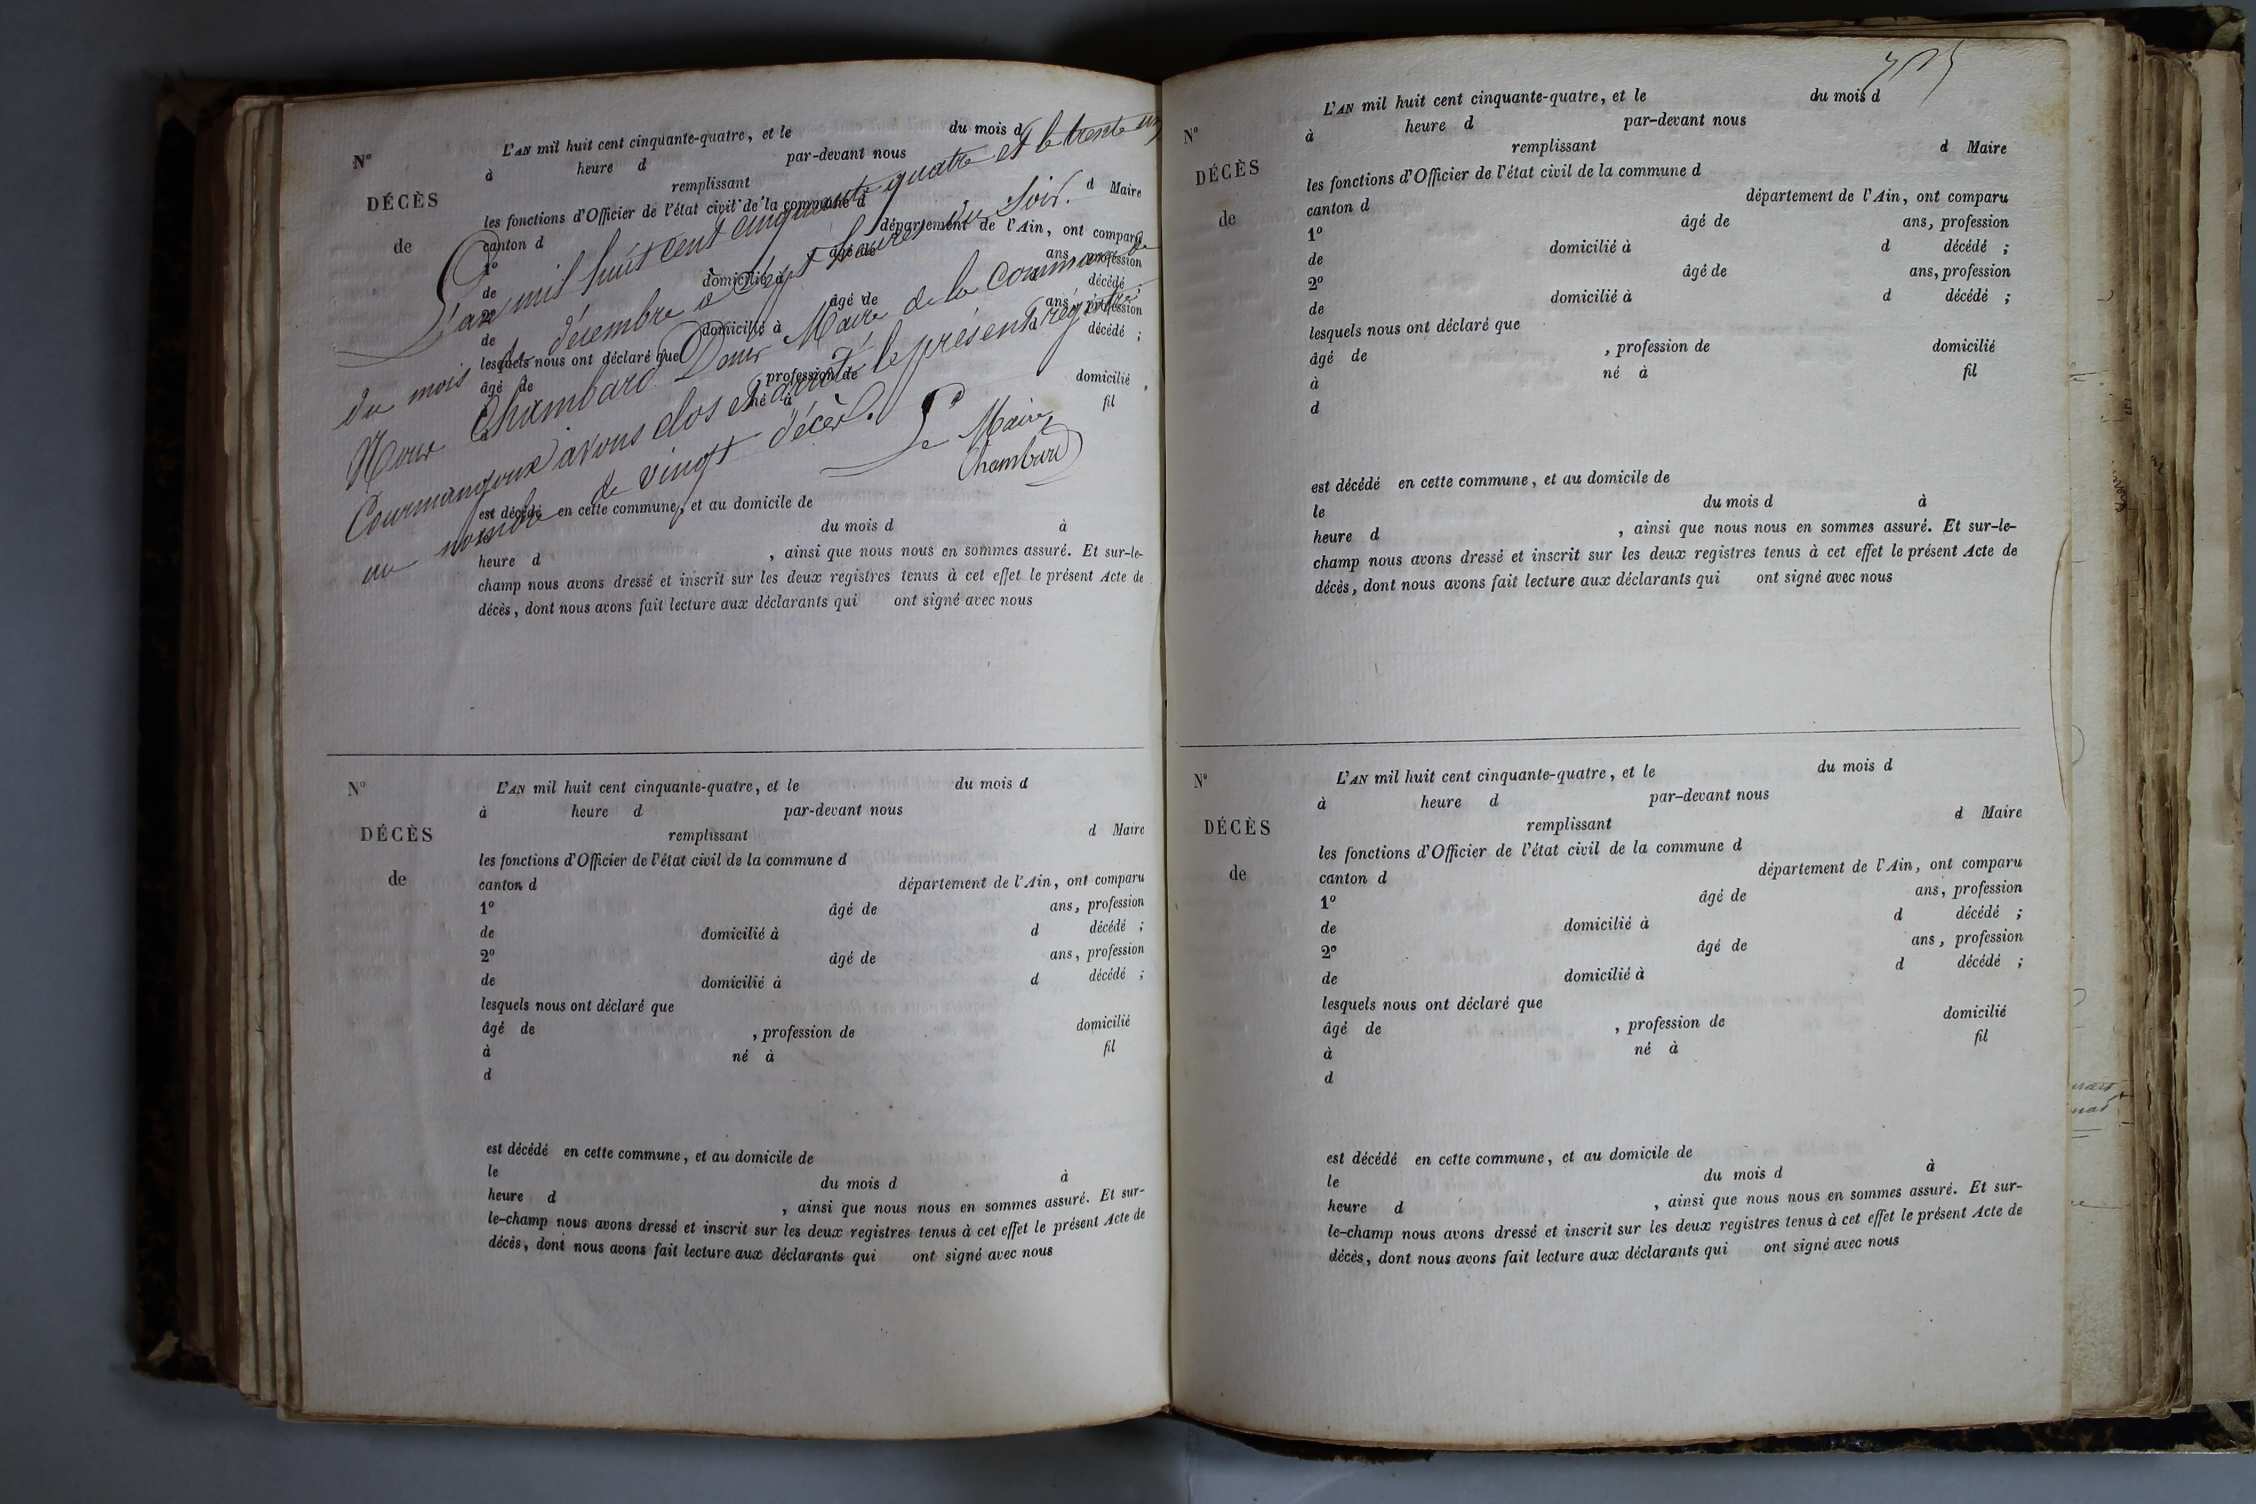 L'an mil huit cent cinquante quatre et le trente un
du mois de décembre à sept heures du Soir.
Nous Chambard Maire de la Commune de
Courmangoux avons clos et arrêté le présent registre
au nombre de vingt décès.
Le Maire
Chambard
Nº
DÉCÈS
de
L'AN mil huit cent cinquante-quatre, et le du mois d
à heure d par-devant nous
remplissant d Maire
les fonctions d'Officier de l'état civil de la commune d
canton d département de l'Ain, ont comparu
1º âgé de ans, profession
de domicilié à d décédé ;
2º âgé de ans, profession
de domicilié à d décédé ;
lesquels nous ont déclaré que
âgé de , profession de domicilié
à né à fil
d
est décédé en cette commune, et au domicile de
le du mois d à
heure d , ainsi que nous nous en sommes assuré. Et sur-le-
champ nous avons dressé et inscrit sur les deux registres tenus à cet effet le présent Acte de
décès, dont nous avons fait lecture aux déclarants qui ont signé avec nous
Nº
DÉCÈS
de
L'AN mil huit cent cinquante-quatre, et le du mois d
à heure d par-devant nous
remplissant d Maire
les fonctions d'Officier de l'état civil de la commune d
canton d département de l'Ain, ont comparu
1º âgé de ans, profession
de domicilié à d décédé ;
2º âgé de ans, profession
de domicilié à d décédé ;
lesquels nous ont déclaré que
âgé de , profession de domicilié
à né à fil
d
est décédé en cette commune, et au domicile de
le du mois d à
heure d , ainsi que nous nous en sommes assuré. Et sur-
le-champ nous avons dressé et inscrit sur les deux registres tenus à cet effet le présent Acte de
décès, dont nous avons fait lecture aux déclarants qui ont signé avec nous
Nº
DÉCÈS
de
L'AN mil huit cent cinquante-quatre, et le du mois d
à heure d par-devant nous
remplissant d Maire
les fonctions d'Officier de l'état civil de la commune d
canton d département de l'Ain, ont comparu
1º âgé de ans, profession
de domicilié à d décédé ;
2º âgé de ans, profession
de domicilié à d décédé ;
lesquels nous ont déclaré que
âgé de , profession de domicilié
à né à fil
d
est décédé en cette commune, et au domicile de
le du mois d à
heure d , ainsi que nous nous en sommes assuré. Et sur-le-
champ nous avons dressé et inscrit sur les deux registres tenus à cet effet le présent Acte de
décès, dont nous avons fait lecture aux déclarants qui ont signé avec nous
Nº
DÉCÈS
de
L'AN mil huit cent cinquante-quatre, et le du mois d
à heure d par-devant nous
remplissant d Maire
les fonctions d'Officier de l'état civil de la commune d
canton d département de l'Ain, ont comparu
1º âgé de ans, profession
de domicilié à d décédé ;
2º âgé de ans, profession
de domicilié à d décédé ;
lesquels nous ont déclaré que
âgé de , profession de domicilié
à né à fil
d
est décédé en cette commune, et au domicile de
le du mois d à
heure d , ainsi que nous nous en sommes assuré. Et sur-
le-champ nous avons dressé et inscrit sur les deux registres tenus à cet effet le présent Acte de
décès, dont nous avons fait lecture aux déclarants qui ont signé avec nous